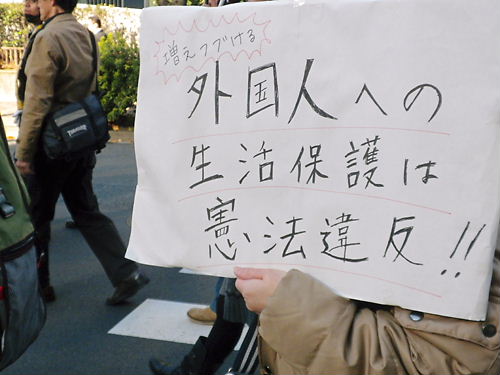 増えつづける
外国人への
生活保護は
憲法違反!!